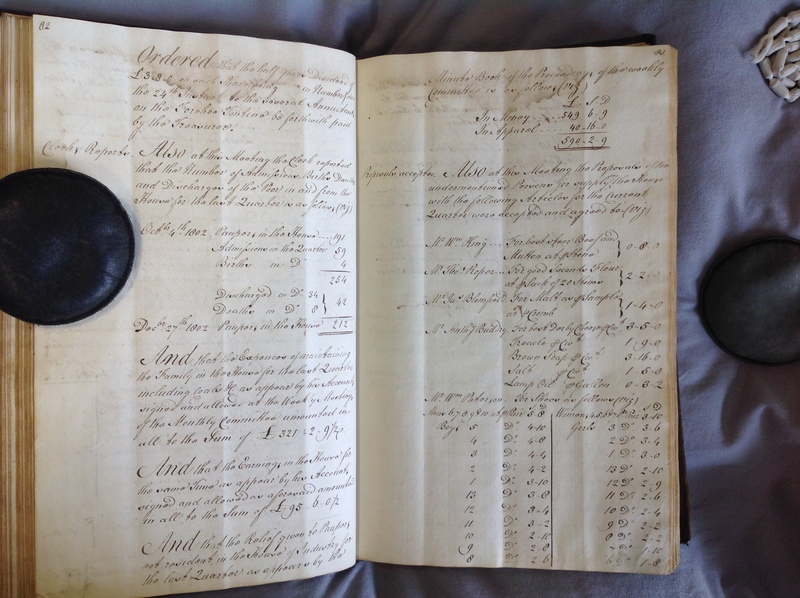 82
Ordered that the half Years Dividend of
£3-8-2 on each
the 24th Instant to the several Annuitants
on the Forehoe Tontine be forthwith paid
by the Treasurer.
Clerk's Reports. Also at this Meeting the Clerk reported
that the Number of Admissions Births Deaths
and Discharges of the Poor in and from the
House for the last Quarter is as follows (Viz)
Octbr 4th 1802 Paupers in the House 191
Admissions in the Quarter 59
Births in Do 4
254
Discharged in Do 34
Deaths in Do 8 } 42
Decbr 27th 1802 Paupers in the House 212
And that the Expences of maintaining
the Family in the House for the last Quarter
including Coals &c as appear by his Account,
signed and allowed at the Weekly Meeting
of the Monthly Committee amounted in
all to the Sum of £321-2-9½
And that the Earnings in the House for
the same Time as appear by his Account,
signed and allowed as aforesaid amounted
in all to the Sum of £95-6-0½
And that the Relief given to Paupers
not resident in the House of Industry for
the last Quarter as appears by the
Minute Book of the Proceedings of the weekly
Committee is as follows (Viz)
£ S D
In Money 549-6-9
In Apparel 40-16-0
590-2-9
Proposals accepted Also at this Meeting the Proposals of the
undermentioned Persons for supplying the House
with the following Articles for the Current
Quarter were accepted and agreed to (Viz)
Mr Wm King For best Steer Beef and
Mutton at P Stone } 0-8-0
Mr Thos Roper For good Seconds Flour
at P Sack of 20 Stone } 2-2-0
Mr Jas Blomfield For Malt as P Sample
at P Comb } 1-4-0
Mr Anthy For best Derby Cheese P Cwt 3-5-0
Treacle P Cwt 1-9-0
Brown Soap P Cwt 3-16-0
Salt P Cwt 1-5-0
Lamp Oil P Gallon 0-3-2
Mr Wm Paterson For Shoes as follows (Viz)
S D S D
Mens 6 7 8 9 & 10 at P Pair 5-8 Womens 4 5 6 & 7 P Pair 3-10
Boys 5 Do 4-10 Girls 3 Do 3-6
4 Do 4-8 2 Do 3-4
3 Do 4-4 1 Do 3-0
2 Do 4-2 13 Do 2-10
1 Do 3-10 12 Do 2-9
13 Do 3-8 11 Do 2-6
12 Do 3-4 10 Do 2-4
11 Do 3-2 9 Do 2-2
10 Do 2-10 8 Do 2-2
9 Do 2-8 7 Do 1-10
8 Do 2-6 6 Do 1-8